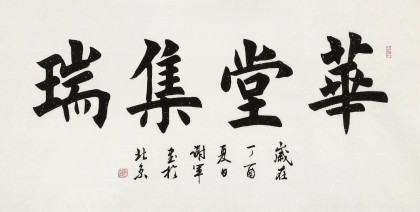 華堂集瑞
歲在
丁酉
夏日
謝軍
書於
北京